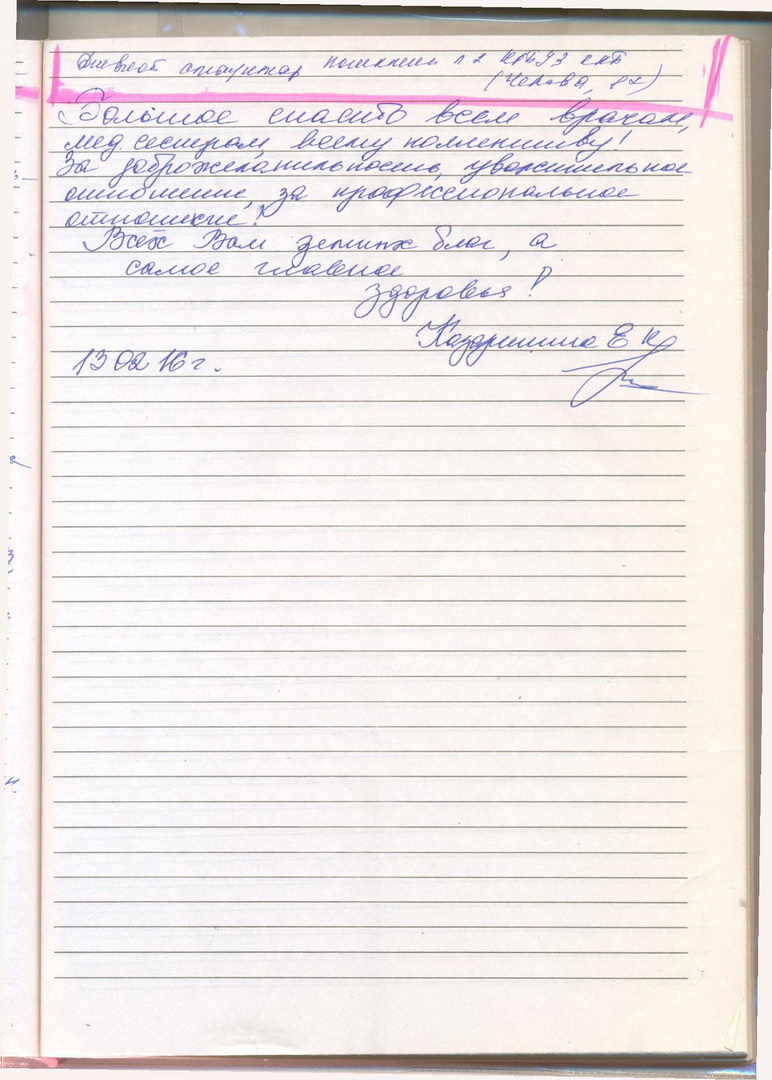 Дневной стационар поликлиники № 2
Большое спасибо всем врачам,
мед. сестрам, всему коллективу!
За доброжелательность, уважительное
отношение, за профессиональное
отношение!
Всех Вам земных благ, а
самое главное
здоровья!
Казаринина Е
13 02 16 г.